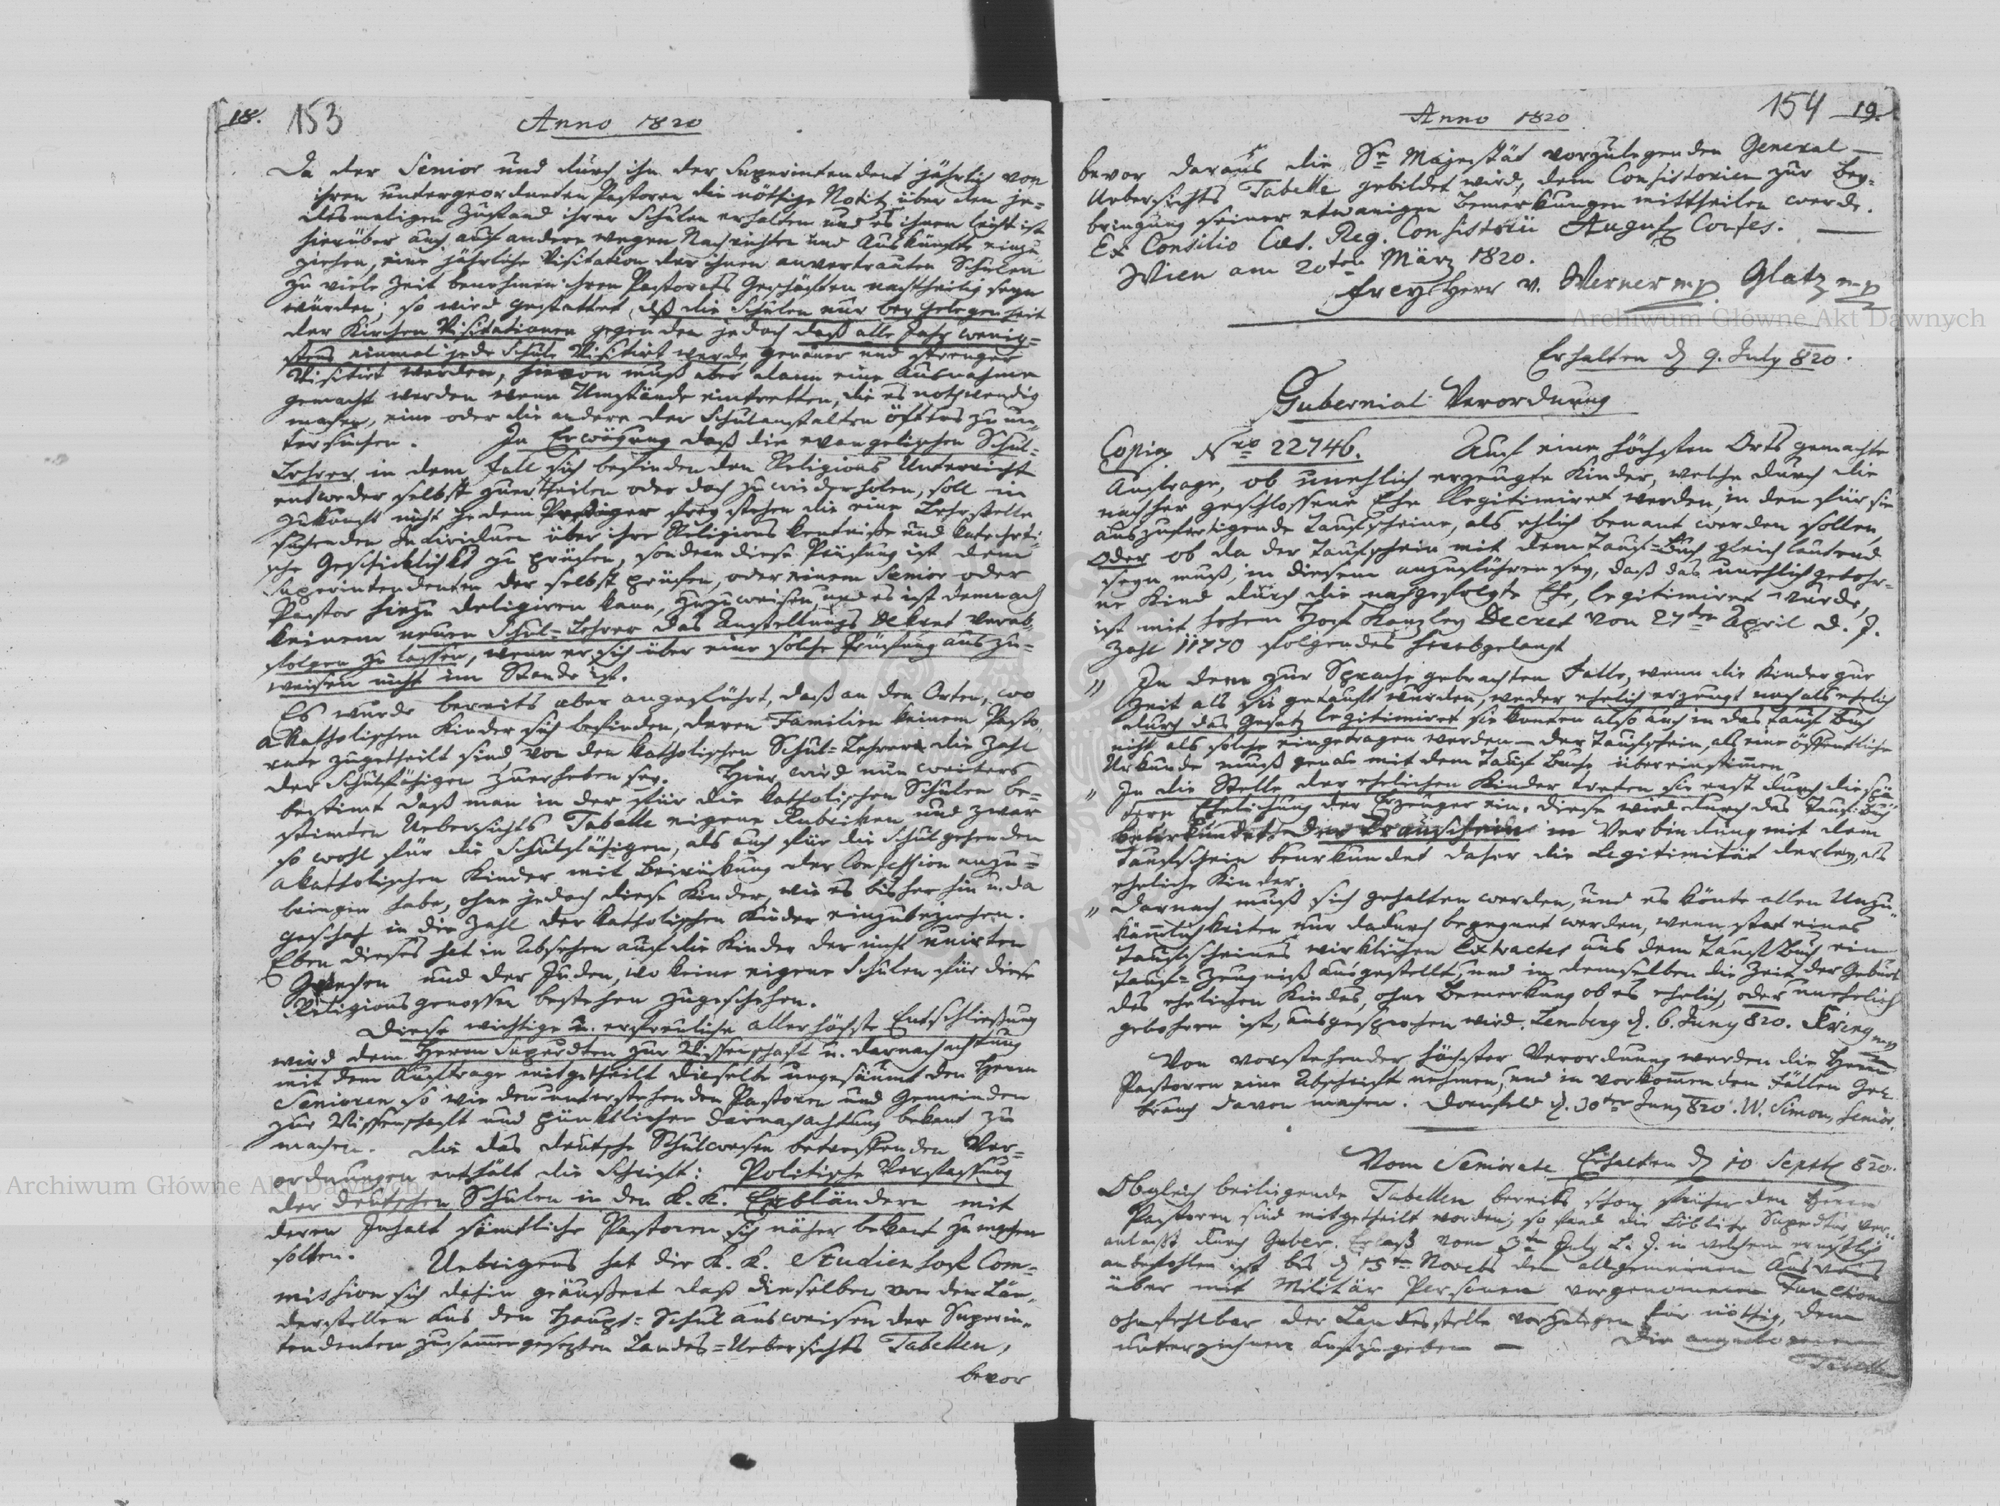 18. 153 Anno 1820
Da der Senior und durch ihn der Superintendent jährlich von
ihren untergeordneten Pastoren die nöthige Notitz über den je-
desmaligen Zustand ihrer Schulen erhalten und es ihnen leicht ist
hierüber auch auf andern wegen Nachrichten und Auskünfte einzu-
ziehen, eine jährliche Visitation der ihnen anvertrauten Schulen
zu viele Zeit benehmen ihren Pastorats Geschäften nachtheilig seyn
würden, so wird gestattet, daß die Schulen nur bey Gelegenheit
der Kirchen Visitationen gegen dem jedoch daß alle Jahr wenig-
stens einmal jede Schule Visitirt werde genauer und strenger
Visitirt werden, hievon muß aber dann eine Ausnahme
gemacht werden wenn Umstände eintretten, die es nothwendig
machen, eine oder die andere der Schulanstalten öfters zu un-
tersuchen. In Erwägung daß die evangelischen Schul-
Lehrer in dem Fall sich befinden den Religions Unterricht
entweder selbst zu ertheilen oder doch zu wiederholen, soll in
Zukunft nicht jedem Prediger frey stehen die eine Lehrstelle
suchenden Individuen über ihre Religions kentniße und katecheti-
sche Geschicklichkt zu prüfen, sondern diese Prüfung ist dem
Superintendenten der selbst prüfen, oder einem Senior oder
Pastor hiezu deligiren kann, zuzuweisen, und es ist demnach
keinem neuen Schul-Lehrer das Anstellungs Dekret verab-
folgen zu lassen, wenn er sich über eine solche Prüfung auszu-
weisen nicht im Stande ist.
Es wurde bereits aber angeführt, daß an den Orten, wo
akatholischen Kinder sich befinden, deren Familien keinem Pasto-
rate zugetheilt sind, von den katholischen Schul-Lehrern die Zahl
der Schulfähigen zu erheben sey. Hier wird nun weiters
bestimt daß man in der für die katholischen Schulen be-
stimten Uebersichts Tabelle eigene Rubriken und zwar
so wohl für die Schulfähigen, als auch für die Schulgehenden
akatholischen Kinder mit Beirückung der Confession anzu-
bringen habe, ohne jedoch diese Kinder, wie es bisher hin u. da
geschah in die Zahl der katholischen Kinder einzubeziehen.
Eben dieses hat in Absehen auf die Kinder der nicht unirten
Griechen und der Juden, wo keine eigene Schulen für diese
Religionsgenossen bestehen zugeschehen.
Diese wichtige u. erfreuliche allerhöchste Entschließung
wird dem Herrn Superdten zur Wissenschaft u. darnachachtung
mit dem Auftrage mitgetheilt dieselbe ungesäumt den Herrn
Senioren so wie den unterstehenden Pastoren und Gemeinden
zur Wissenschaft und pünktlicher Darnachachtung bekant zu
machen. Die das deutsche Schulwesen betreffenden Ver-
ordnungen enthält die Schrift: Politische Verfassung
der deutschen Schulen in den K. K. Erbländern mit
deren Inhalt sämtliche Pastoren sich näher bekant zu machen
sollen. Uebrigens hat die K. K. Studien hof Com-
mission sich dahin geäußert daß dieselbe von den Län-
derstellen aus den Haupt-Schulausweisen der Superin-
tendenten zusammengesezten Landes-Uebersichts Tabellen,
bevor
Anno 1820 154 19.
bevor daraus die Sr Majestät vorzulegenden General
Uebersichts Tabelle gebildet wird, dem Consistorien zur Bey-
bringung seiner etwanigen Bemerkungen mittheilen werde.
Ex Consilio Cæs. Reg. Consistorii August Confes.
Wien am 20ten März 1820.
Freyherr v. Werner mp. Glatz mp
Erhalten d 9. July 820.
Gubernial Verordnung
Copia Nro 22746. Auf eine höchsten Orts gemachte
Anfrage, ob unehlich erzeugte Kinder, welche durch die
nachher geschlossene Ehe legitimiret werden, in den für sie
auszufertigende Taufscheine, als ehlich benant werden sollen,
oder ob da der Taufschein mit dem Tauf-Buch gleich lautend
seyn muß, in diesem anzuführen sey, daß das unehlich gebohr-
ne Kind durch die nachgefolgte Ehe, legitimiret wurde,
ist mit hohem Hof Kanzley Decret von 27ten April d. J.
Zahl 11770 folgendes herabgelangt
" In dem zur Sprache gebrachten Falle, wenn die Kinder zur
Zeit als sie getauft wurden, weder ehelich erzeugt noch als ehelich
durch das Gesetz legitimiret sie konten also auch in das Tauf Buch
nicht als solche eingetragen werden – der Taufschein, als eine öffentliche
Urkunde muß genau mit dem Tauf Buche übereinstimen
" In die Stelle der ehelichen Kinder treten sie erst durch die spä-
tere Ehelichung der Erzeuger ein. diese wird durch das Trau: Buch
beurkundet der Trauschein in Verbindung mit dem
Taufschein beurkundet daher die Legitimität derley als
eheliche Kinder.
" Darnach muß sich gehalten werden, und es könte allen Unzu-
kömlichkeiten nur dadurch begegnet werden, wenn stat eines
Taufscheines wirklichen Extractes aus dem Tauf Buch, ein
Tauf-Zeugniß ausgestellt, und in demselben die Zeit der Geburt
des ehelichen Kindes, ohne Bemerkung ob es ehelich, oder unehelich
gebohren ist, ausgesprochen wird. Lemberg d. 6. Juny 820. Krieg mp
Von vorstehender höchster Verordnung werden die Herrn
Pastoren eine Abschrift nehmen, und in vorkommenden Fällen Ge-
brauch davon machen. Dornfeld d. 30ten Juny 820. W. Simon, Senior.
Vom Seniorate Erhalten d 10 Septb 820.
Obgleich beiliegende Tabellen bereits schon früher den Herrn
Pastoren sind mitgetheilt worden; so fand die Löbliche Superdtur ver-
anlaßt durch Guber. Erlaß vom 3ten July l. J. in welchem ernstlich
anbefohlen ist bis d 15ten Novbr den allgemeinen Ausweis
über mit Militär Personen vorgenommene Functionen
ohnfehlbar der Landesstelle vorzulegen für nöthig, dem
unterzeichneten aufzugeben – Die
Tabelle
Archiwum Główne Akt Dawnych
Archiwum Główne Akt Dawnych